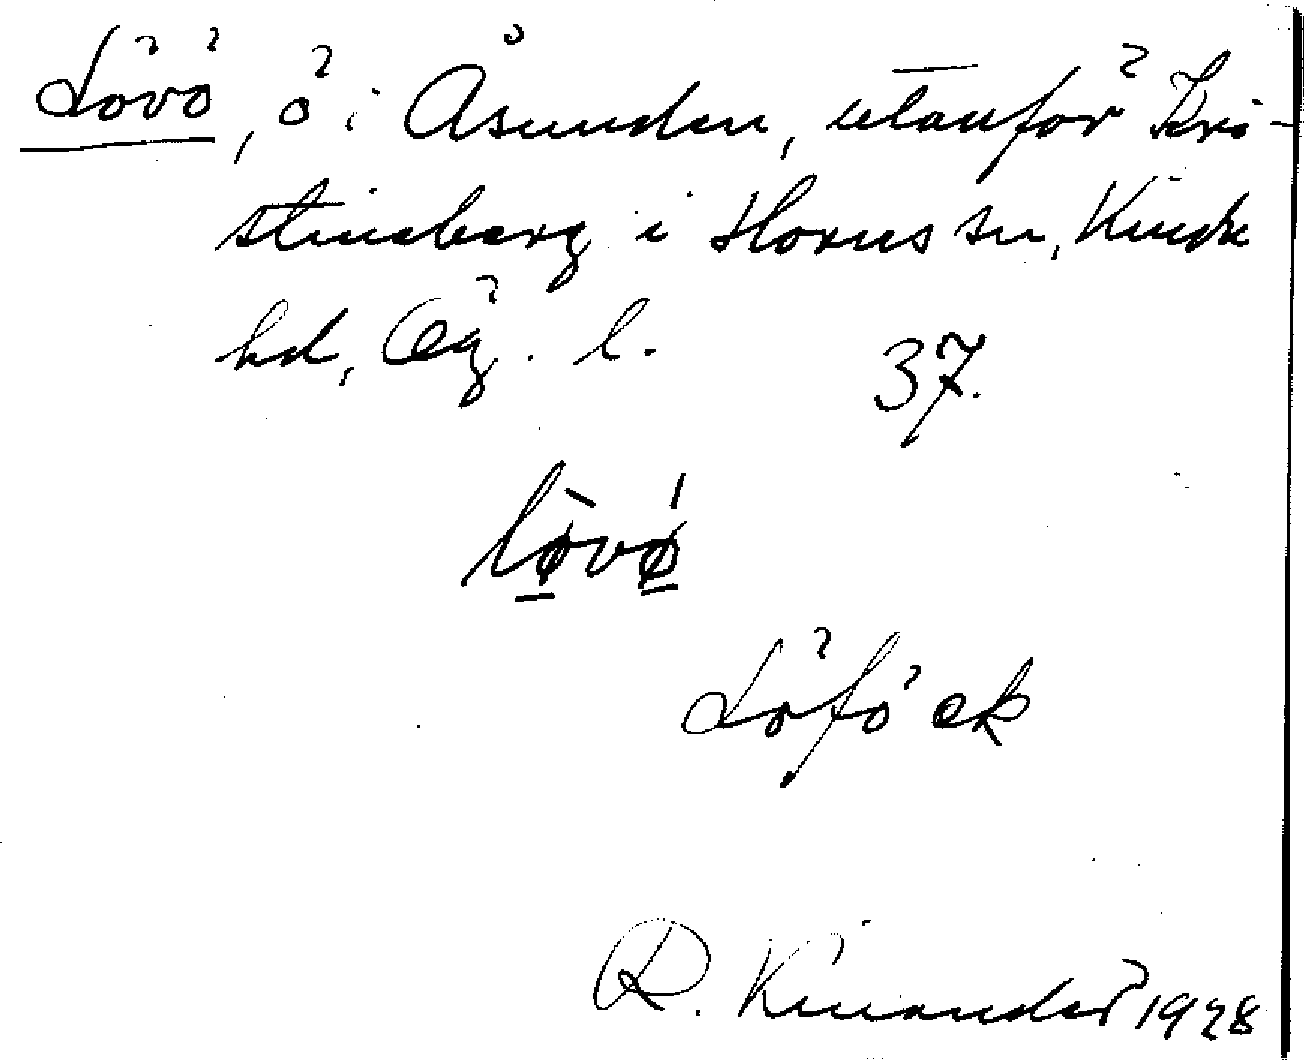 Lövö, ö i Åsunden, utanför Kri-
stineberg i Horns sn, Kinda
hd, Ög. l.
37.
lø̀vǿ
Löfö ek
R. Kinander 1928